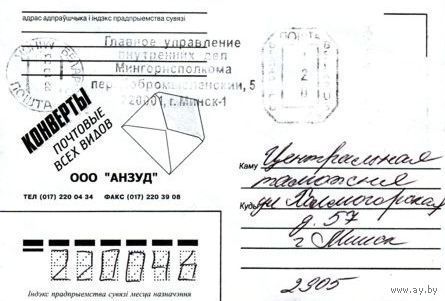 адрас адпраўшчыка і індэкс прадпрыемства сувязі
Главное управление
внутренних дел
Мингорисполкома
пер. Добромысленский, 5
220001, г. Минск-1
ПОШТА
КОНВЕРТЫ
ПОЧТОВЫЕ
ВСЕХ ВИДОВ
ООО "АНЗУД"
ТЕЛ (017) 220 04 34 ФАКС (017) 220 39 08
220046
Індэкс прадпрыемства сувязі месца назначэння
Каму Центральная
таможня
Куды ул Холмогорская
д. 57
г Минск
2905
www.ay.by